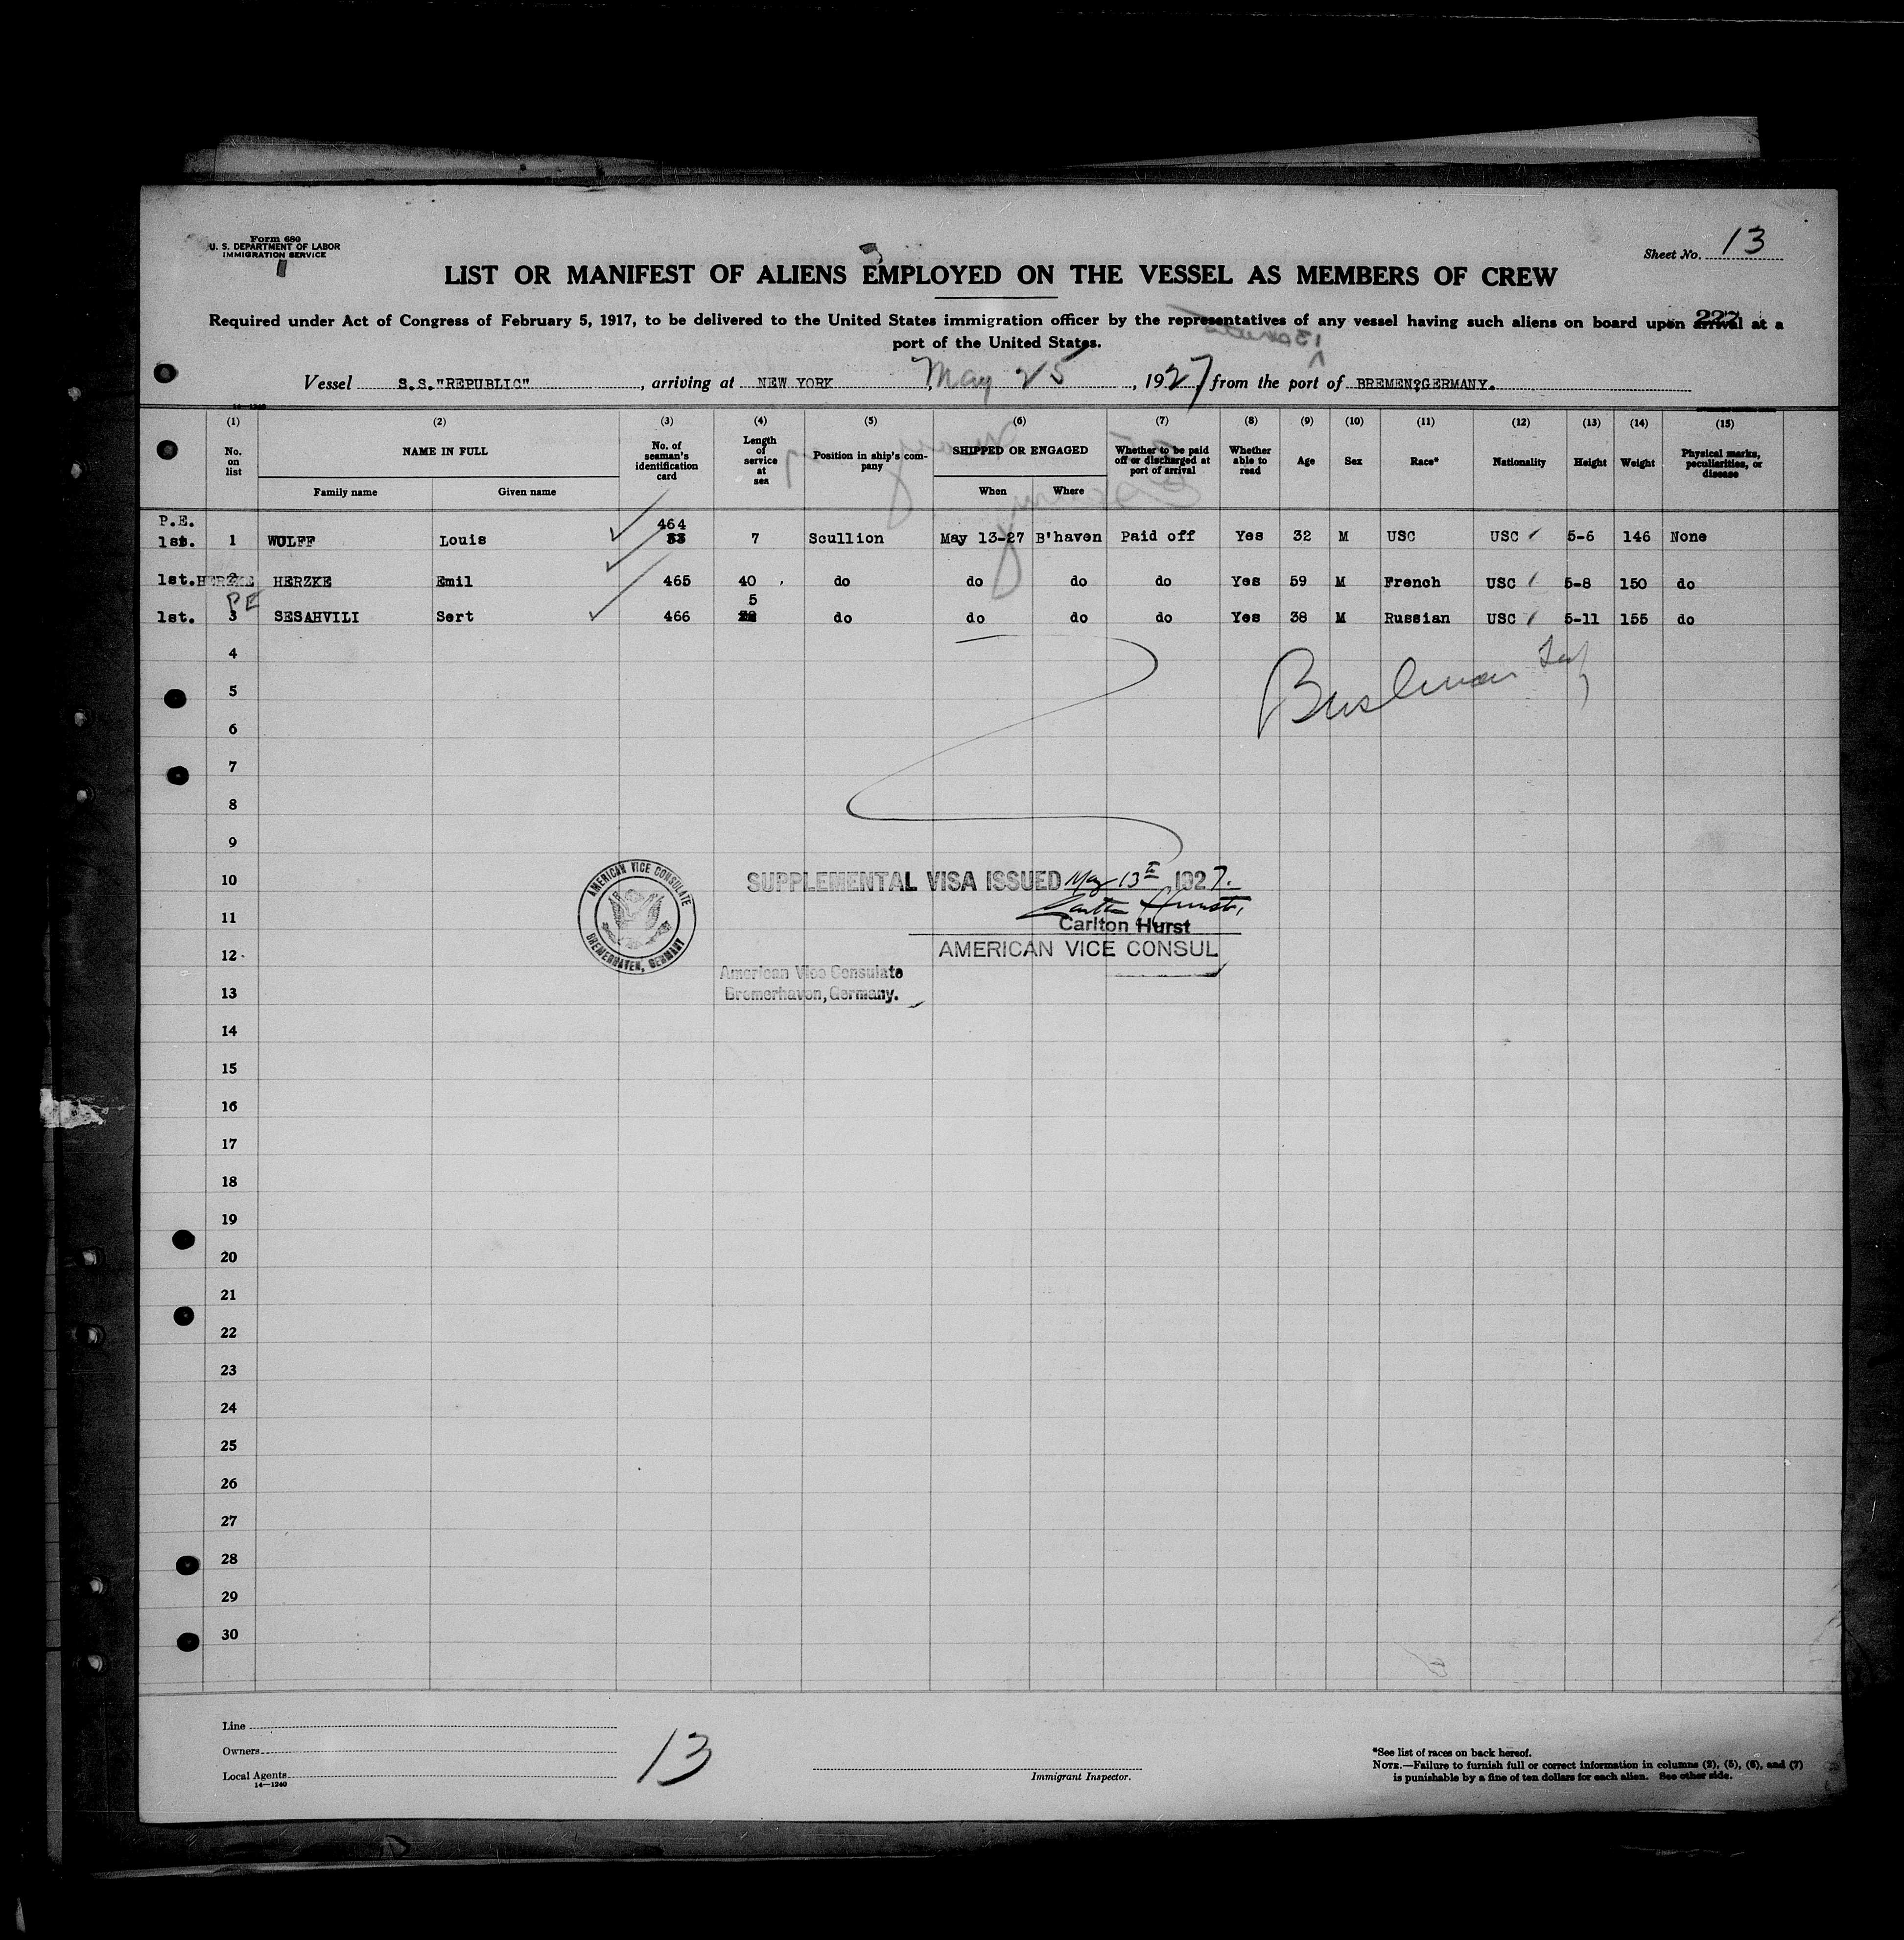 Form 680
U. S. DEPARTMENT OF LABOR
IMMIGRATION SERVICE
Sheet No. 13
LIST OR MANIFEST OF ALIENS EMPLOYED ON THE VESSEL AS MEMBERS OF CREW
Required under Act of Congress of February 5, 1917, to be delivered to the United States immigration officer by the representatives of any vessel having such aliens on board upon arrival at a
227
port of the United States.
Vessel S.S."REPUBLIC", arriving at NEW YORK, May 25, 1927 from the port of BREMEN?GERMANY.
14—1240
(1) (2) (3) (4) (5) (6) (7) (8) (9) (10) (11) (12) (13) (14) (15)
No. on list NAME IN FULL No. of seaman's identification card Length of service at sea Position in ship's company SHIPPED OR ENGAGED Whether to be paid off or discharged at port of arrival Whether able to read Age Sex Race* Nationality Height Weight Physical marks, peculiarities, or disease
Family name Given name When Where
P.E. 464
1st. 1 WULFF Louis 33 7 Scullion May 13-27 B'haven Paid off Yes 32 M USC USC 5-6 146 None
1st. HERZKE 2 HERZKE Emil 465 40 do do do do Yes 59 M French USC 5-8 150 do
PE 5
1st. 3 SESAHVILI Sert 466 do do do do Yes 38 M Russian USC 5-11 155 do
4
5
6
7
8
9
10 SUPPLEMENTAL VISA ISSUED May 13th 1927.
11 Carlton Hurst,
Carlton Hurst
12 AMERICAN VICE CONSUL
AMERICAN VICE CONSULATE
BREMERHAVEN, GERMANY
American Vice Consulate
13 Bremerhaven, Germany.
14
15
16
17
18
19
20
21
22
23
24
25
26
27
28
29
30
Line
Owners
Local Agents
14—1240
13
Immigrant Inspector.
*See list of races on back hereof.
NOTE.—Failure to furnish full or correct information in columns (2), (5), (6), and (7)
is punishable by a fine of ten dollars for each alien. See other side.